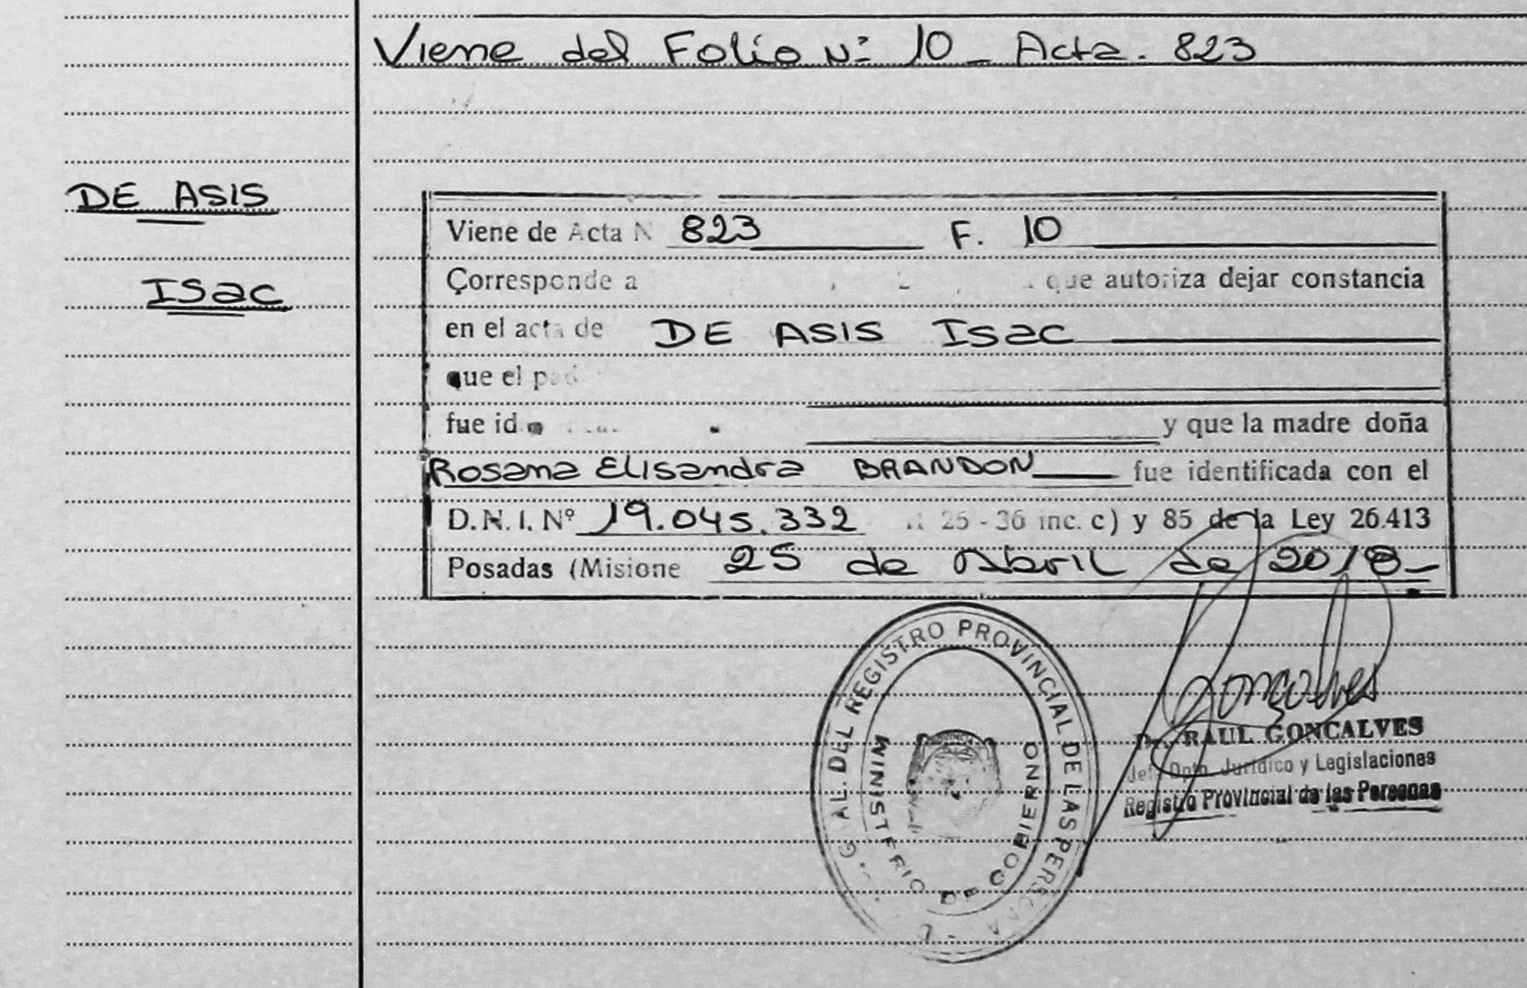 Viene del Folio Nº 10 - Acta. 823
DE ASIS
Isac
Viene de Acta N 823 F. 10
Corresponde a que autoriza dejar constancia
en el acta de DE ASIS Isac
que el
fue y que la madre doña
Rosana Elisandra BRANDON fue identificada con el
D.N.I. Nº 19.045.332 25 - 36 inc. c) y 85 de la Ley 26.413
Posadas (Misione 25 de Abril de 2018-
G AL. DEL REGISTRO PROVINCIAL DE LAS PERSONA
MINISTERIO DE GOBIERNO
Gonçalves
Dr. RAUL GONCALVES
Jef. Dpto. Jurídico y Legislaciones
Registro Provincial de las Personas